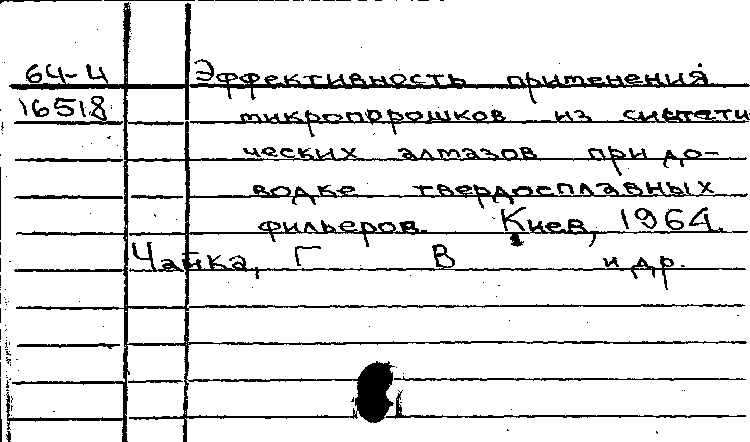 64-4 Эффективность применения
16518 микропорошков из синтети
ческих алмазов при до-
водке твердосплавных
фильеров. Киев, 1964.
Чайка, Г В и др.